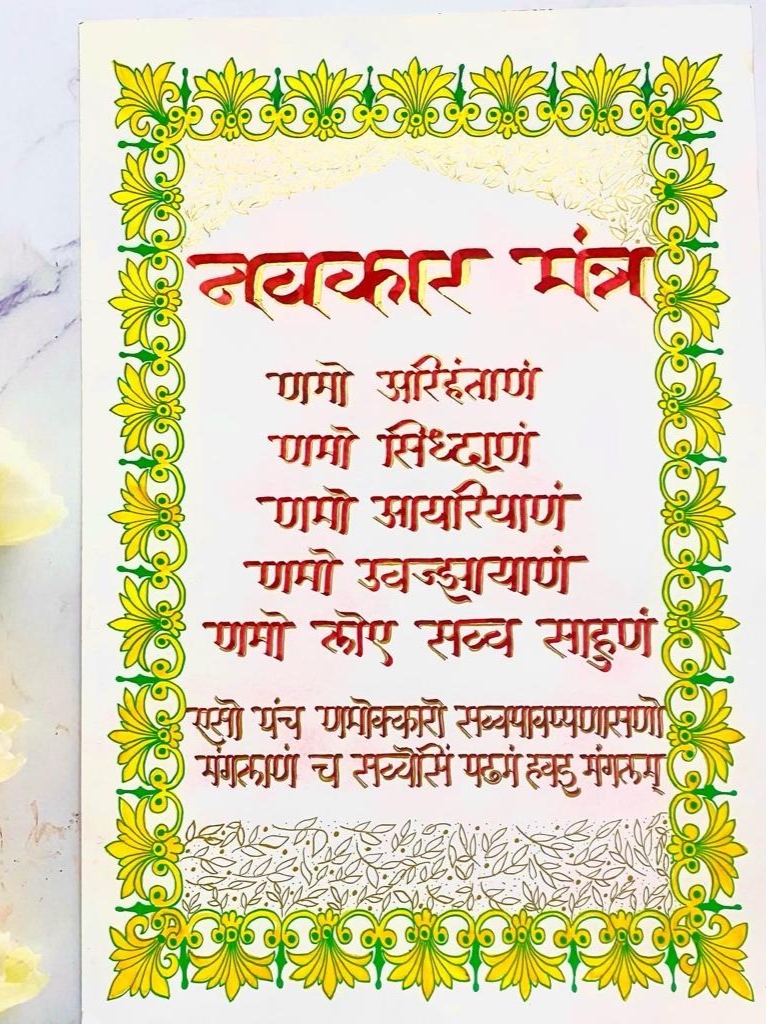 नवकार मंत्र
णमो अरिहंताणं
णमो सिध्दाणं
णमो आयरियाणं
णमो उवज्झायाणं
णमो लोए सव्व साहुणं
एसो पंच णमोक्कारो सव्वपावप्पणासणो
मंगलाणं च सव्वेसिं पढमं हवइ मंगलम्